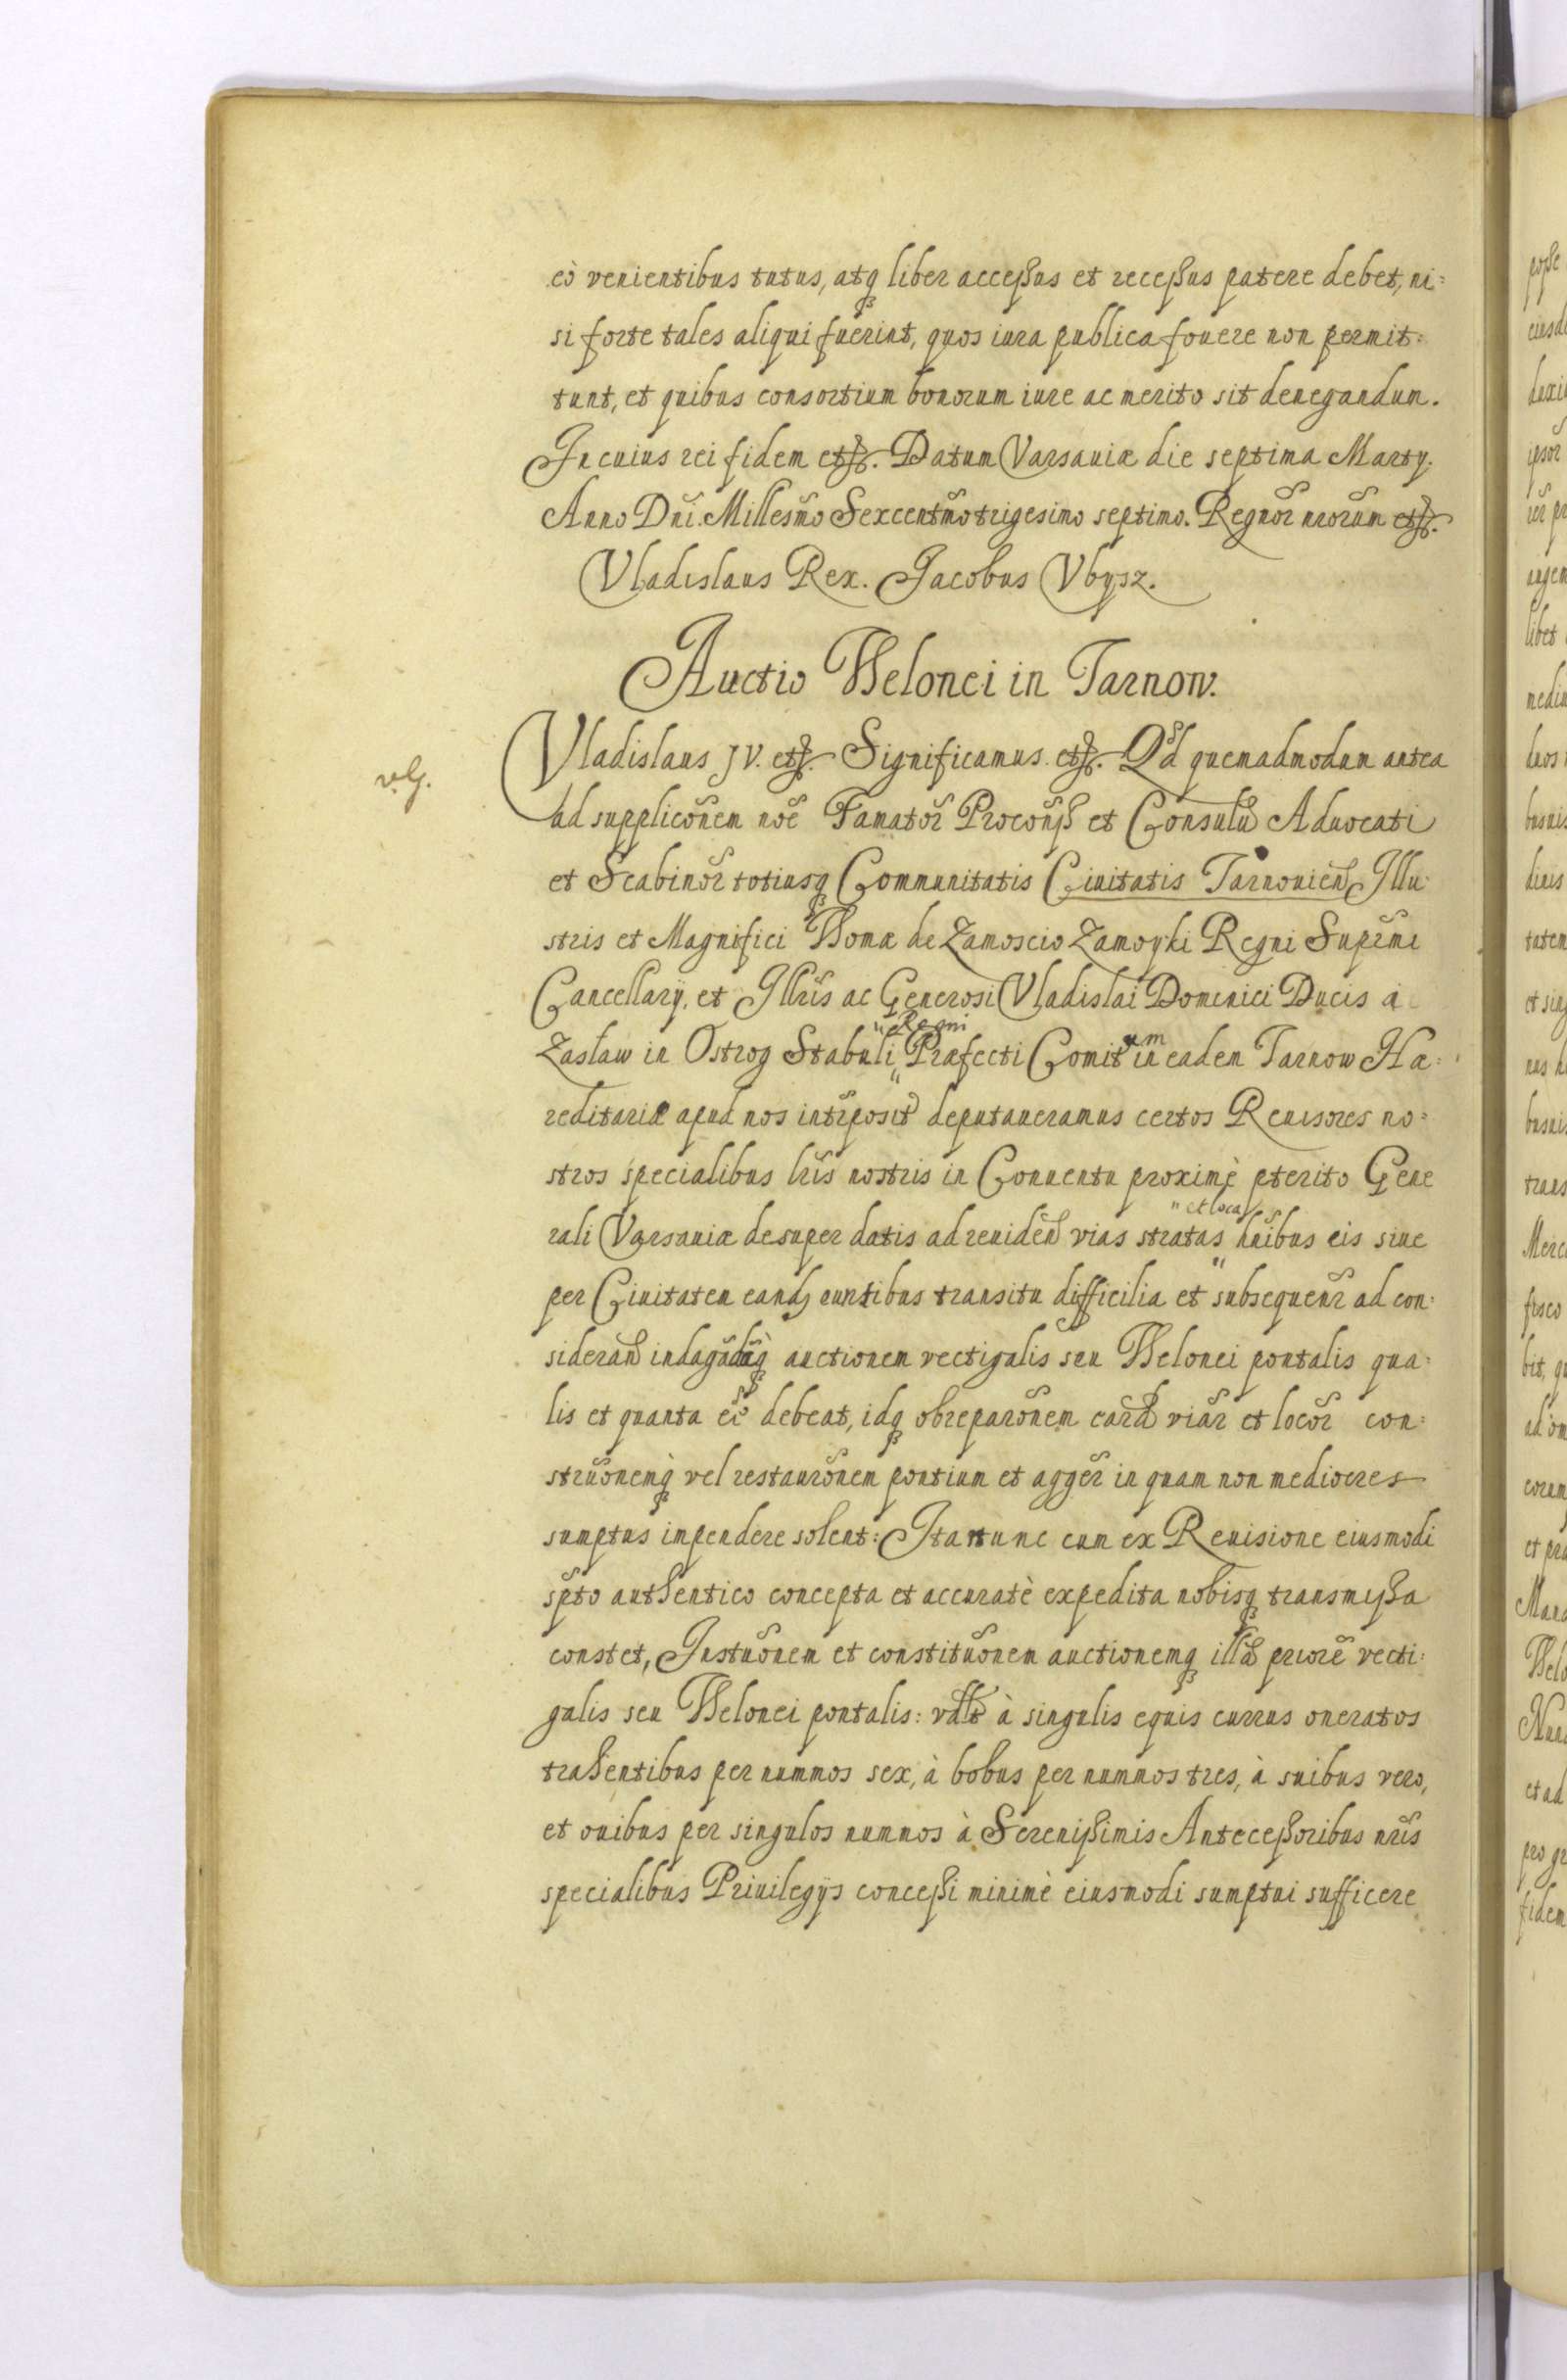 eò venientibus tutus, atq liber accessus et recessus patere debet, ni=
si forte tales aliqui fuerint, quos iura publica fovere non permit=
tunt, et quibus consortium bonorum iure ac merito sit denegandum.
In cuius rei fidem etc. Datum Varsaviæ die septima Marty.
Anno Dni. Millesmo Sexcentmo trigesimo septimo. Regnor nrorum etc.
Vladislaus Rex. Jacobus Vbysz.
Auctio Thelonei in Tarnow.
v.G.
Vladislaus IV. etc. Significamus. etc. Qd quemadmodum antea
ad supplicōnem noe Famator Procons et Consulu Aduocati
et Scabinor totiusq Communitatis Ciuitatis Tarnouien Illu=
stris et Magnifici Thomæ de Zamoscio Zamoyski Regni Supremi
Cancellary. et Illris ac Generosi Vladislai Dominici Ducis à
"Regni
Zasław in Ostrog Stabuli " Præfecti Comitum in eadem Tarnow Hæ=
reditariæ apud nos intrposit deputaueramus certos Reuisores no=
stros specialibus lris nostris in Conuentu proximè pterito Gene
"et loca
rali Varsauiæ desuper datis ad reuiden vias stratas " huibus eis siue
per Ciuitatem eand euntibus transitu difficilia et subsequenr ad con=
sideran indagādāq auctionem vectigalis seu Thelonei pontalis qua=
lis et quanta eē debeat, idq ob reparōnem eard viar et locor con=
struōnemq vel restaurōnem pontium et agger in quam non mediocres
sumptus impendere solent: Ita nunc cum ex Reuisione eiusmodi
spto authentico concepta et accuratè expedita nobisq transmissa
constet, Instuōnem et constituōnem auctionemq illā priorē vecti=
galis seu Thelonei pontalis: vdlt à singulis equis currus oneratos
trahentibus per nummos sex, à bobus per nummos tres, à suibus vero,
et ouibus per singulos nummos à Serenissimis Antecessoribus nris
specialibus Priuilegijs concessi minimè eiusmodi sumptui sufficere